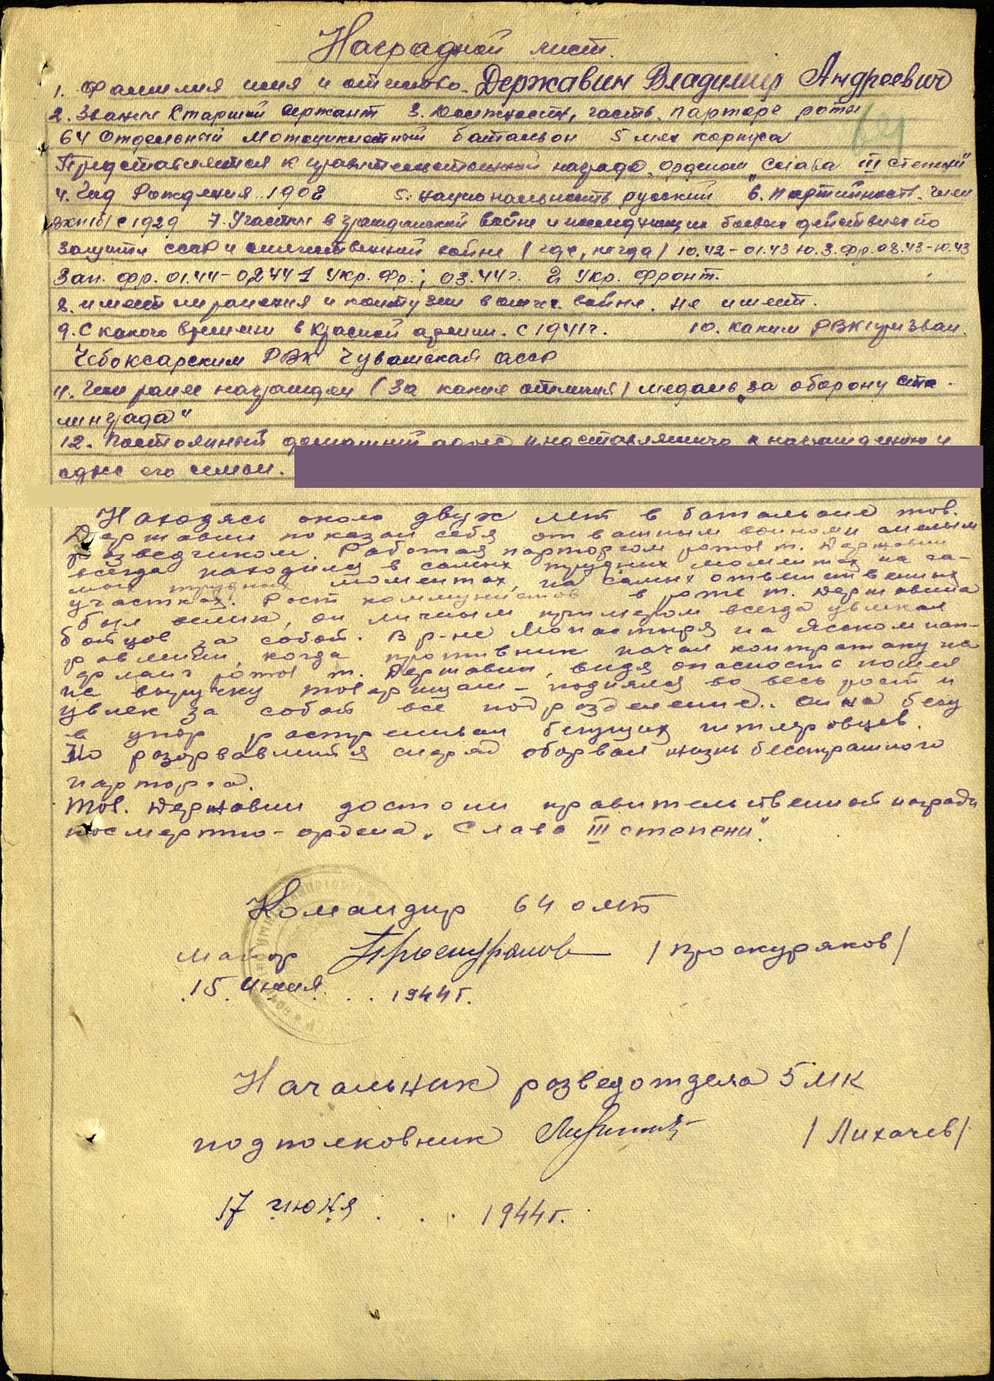 Наградной лист.
1. Фамилия имя и отчество. Державин Владимир Андреевич
2. Звание Старший сержант 3. Должность, часть. Парторг роты
64 Отдельный Мотоциклетный батальон 5 мех корпуса
Представляется к правительственной награде орденом "Слава III степени"
4. Год Рождения 1908 5. национальность русский 6. Партийность. член
ВКП(б) с 1929 7. Участие в гражданской войне и последующих боевых действиях по
защите СССР и отечественной войне (где, когда) 10.42-01.43 Ю.З.Фр. 08.43-10.43
Зап. фр. 01.44-02.44 1 Укр. Фр.; 03.44г. 2 Укр. Фронт.
8. имеет ли ранения и контузии в отеч. войне. не имеет.
9. С какого времени в Красной армии. с 1941г. 10. каким РВК призван.
Чебоксарским РВК Чувашская АССР
11. Чем ранее награжден (за какие отличия) медаль "за оборону Ста-
линграда"
12. Постоянный домашний адрес представляемого к награждению и
адрес его семьи.
Находясь около двух лет в батальоне тов.
Державин показал себя отважным воином смелым
разведчиком. Работая парторгом роты т. Державин
всегда находился в самых трудных моментах на са-
мых трудных моментах, на самых ответственных
участках. Рост коммунистов в роте т. Державина
был велик, он личным примером всегда увлекал
бойцов за собой. В р-не Монастыря на Яском нап-
равлении, когда противник начал контратаку на
фланг роты т. Державин, видя опасность пошел
на выручку товарищам - поднялся во весь рост и
увлек за собой все подразделение. Он на бегу
в упор расстреливал бегущих гитлеровцев.
Но разорвавшийся снаряд оборвал жизнь бесстрашного
парторга.
Тов. Державин достоин правительственной награды
посмертно - ордена "Слава III степени".
Командир 64 омтб
майор Проскуряков /Проскуряков/
15 Июня . . . 1944г.
Начальник разведотдела 5 МК
подполковник /Лихачев/
17 июня . . . 1944г.